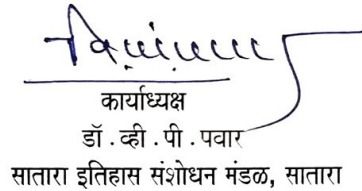 कार्याध्यक्ष
डॉ. व्ही. पी. पवार
सातारा इतिहास संशोधन मंडळ, सातारा